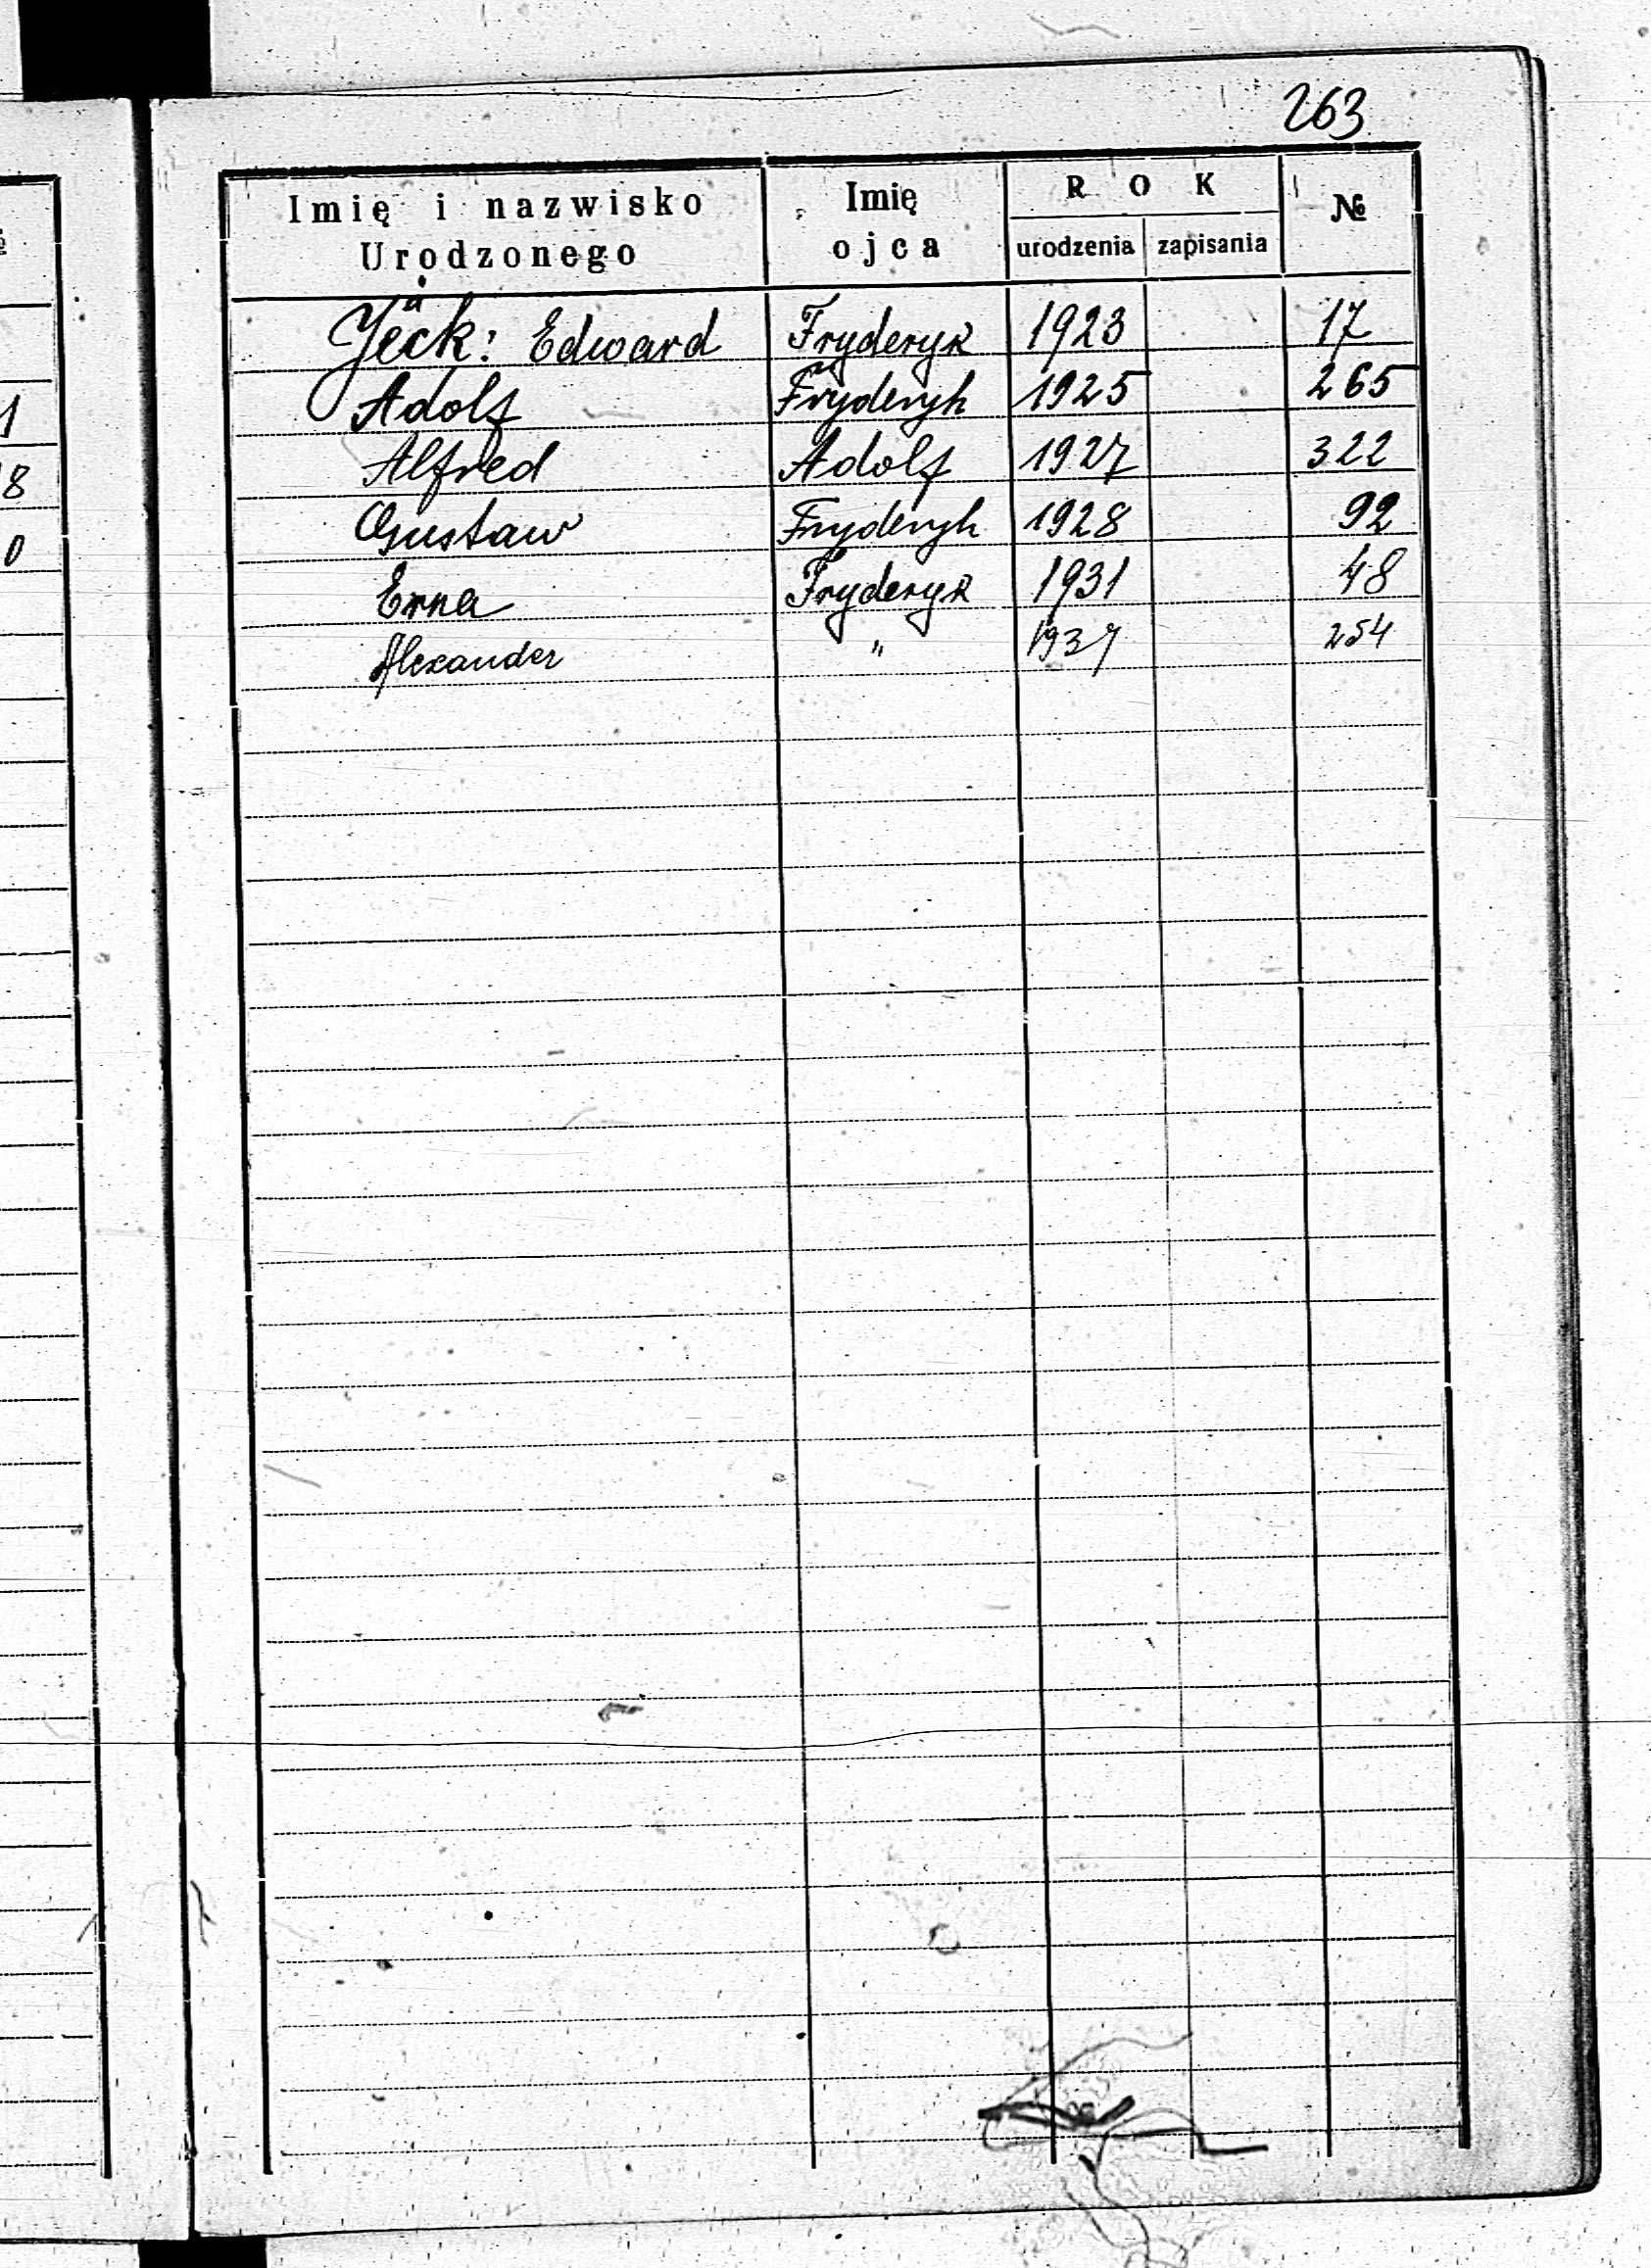 263
Imię i nazwisko Urodzonego Imię ojca R O K №
urodzenia zapisania
Jeck: Edward Fryderyk 1923 17
Adolf Fryderyk 1925 265
Alfred Adolf 1927 322
Gustaw Fryderyk 1928 92
Erna Fryderyk 1931 48
Alexander " 1937 254
1
8
0